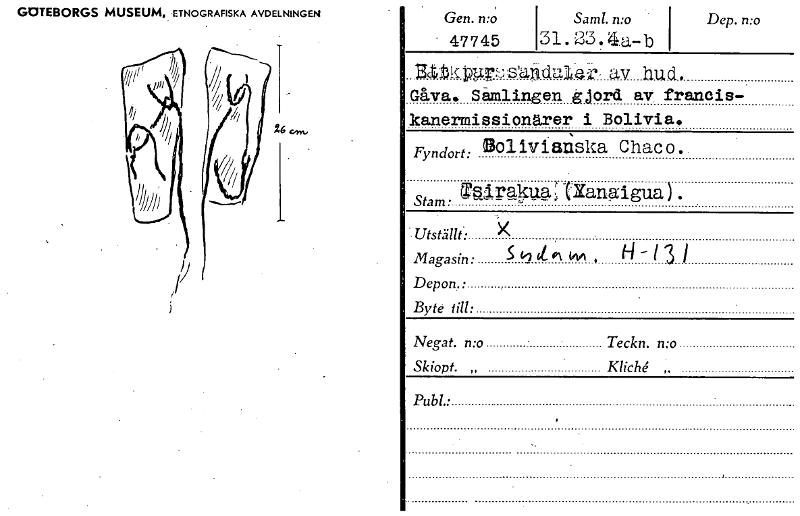 GÖTEBORGS MUSEUM, ETNOGRAFISKA AVDELNINGEN
26 cm
Gen. n:o Saml. n:o Dep. n:o
47745 31.23.4a-b
Ett par sandaler av hud.
Gåva. Samlingen gjord av francis-
kanermissionärer i Bolivia.
Fyndort: Bolivianska Chaco.
Stam: Tsirakua, (Yanaigua).
Utställt: X
Magasin: Sydam. H-131
Depon.:
Byte till:
Negat. n:o Teckn. n:o
Skiopt. „ Kliché „
Publ.: